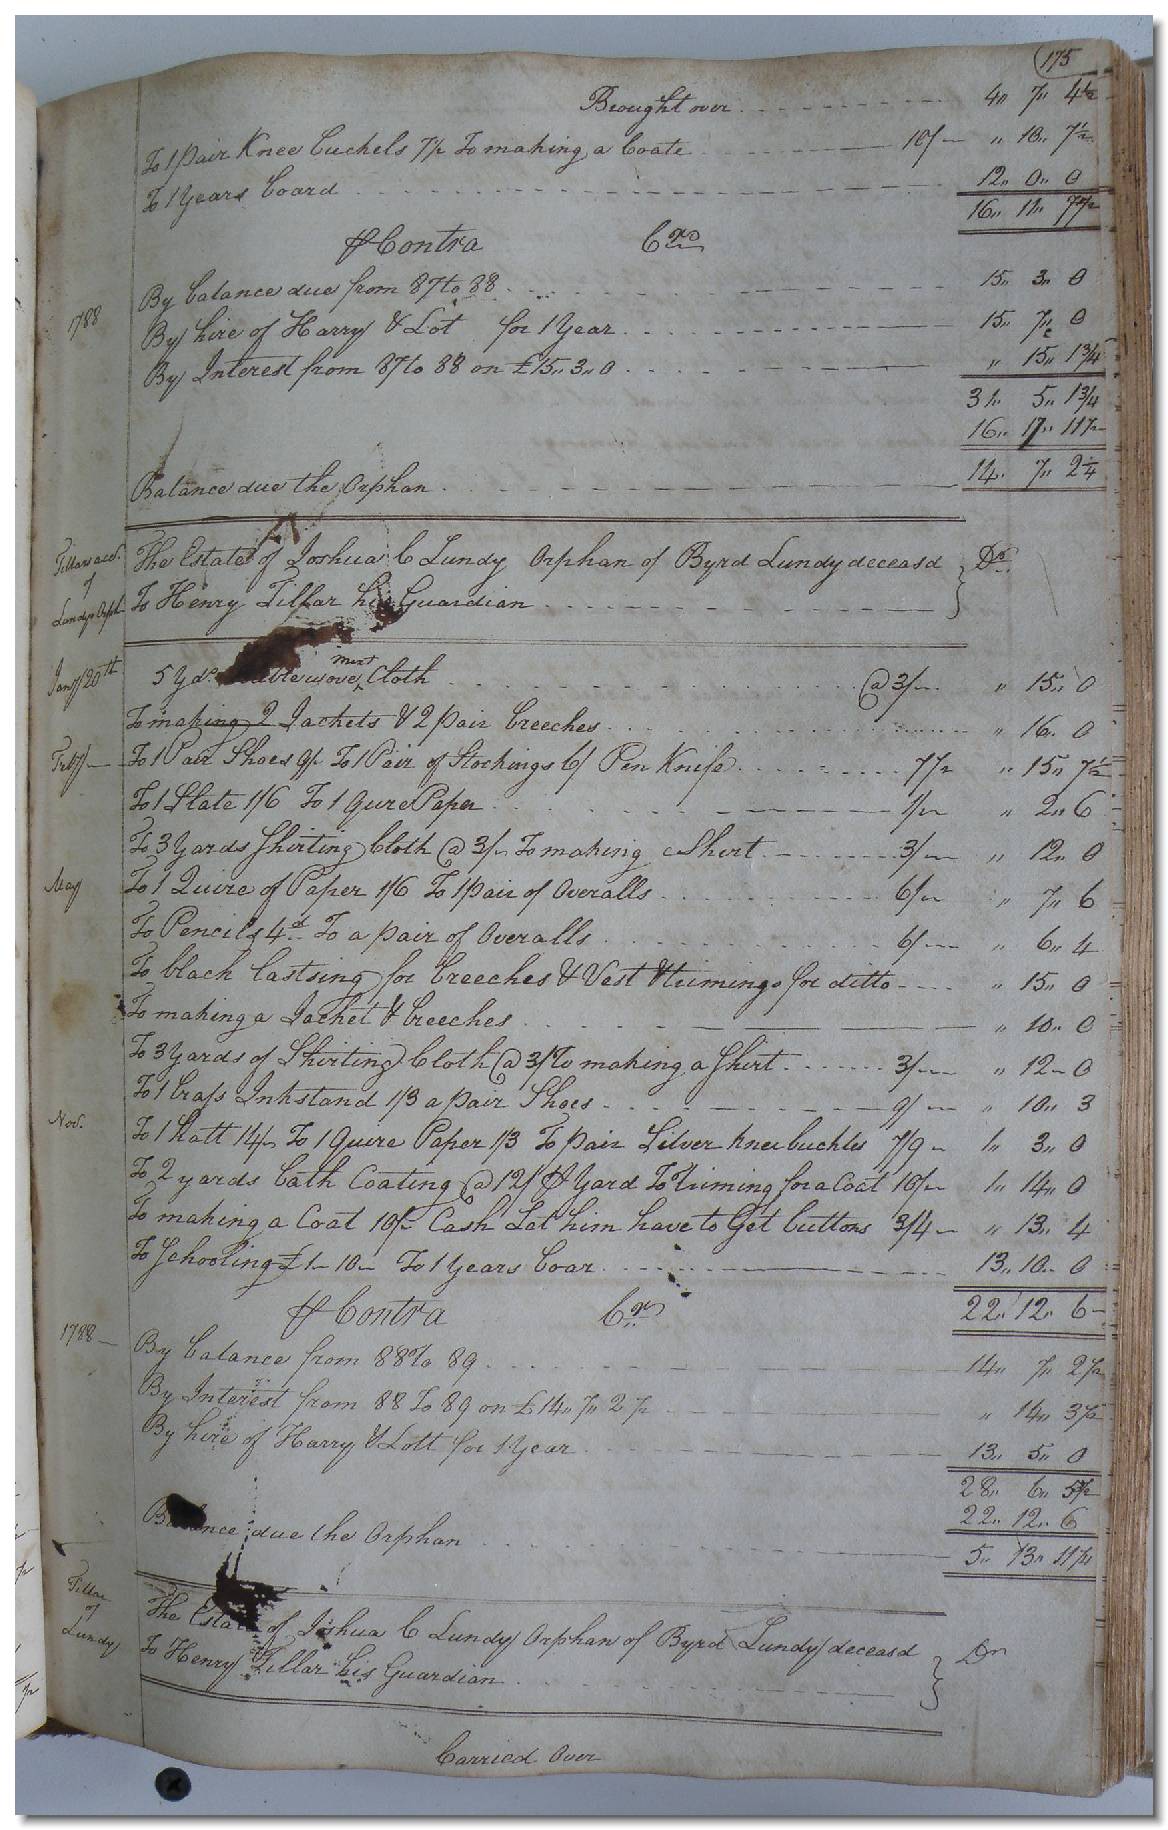 175
Brought over 4 " 7 " 4½
To 1 pair Knee buckels 7½ To making a Coate 10/ " 10 " 7½
To 1 Years board 12 " 0 " 0
16 " 17 " 11½
⅌ Contra Crs
By balance due from 87 to 88 15 " 3 " 0
1788 By hire of Harry & Lot for 1 Year 15 " 7 " 0
By Interest from 87 to 88 on £15 " 3 " 0 " 15 " 1¾
31 " 5 " 1¾
16 " 17 " 11½
Balance due the Orphan 14 " 7 " 2¼
Tillars acct. of Lundys Orph. The Estate of Joshua C Lundy Orphan of Byrd Lundy deceasd Dr
To Henry Tillar his Guardian
Jany 20th 5 Yds wove mixt Cloth @ 3/ " 15 " 0
To making 2 Jackets & 2 pair breeches " 16 " 0
Feby To 1 Pair Shoes 9/ To 1 Pair of Stockings 6/ Pen Knife 7½ " 15 " 7½
To 1 Slate 1/6 To 1 Qure Paper 1/ " 2 " 6
To 3 Yards Shirting Cloth @ 3/ To making Shirt 3/ " 12 " 0
May To 1 Quire of Paper 1/6 To 1 pair of Overalls 6/ " 7 " 6
To Pencils 4d To a pair of Overalls 6/ " 6 " 4
To black lastsing for breeches & Vest & triming for ditto " 15 " 0
To making a Jacket & breeches " 10 " 0
To 3 Yards of Shirting Cloth @ 3/ To making a Shirt 3/ " 12 " 0
To 1 brass Inkstand 1/3 a pair Shoes 9/ " 10 " 3
Nov. To 1 hatt 14/ To 1 Quire Paper 1/3 To pair Silver knee buckles 7/9 1 " 3 " 0
To 2 yards bath Coating @ 12/ ⅌ Yard To Triming for a Coat 10/ 1 " 14 " 0
To making a Coat 10/ Cash Let him have to Get buttons 3/4 " 13 " 4
To Schooling £1 " 10 " To 1 Years boar 13 " 10 " 0
⅌ Contra Crs 22 " 12 " 6
1788 By balance from 88 to 89 14 " 7 " 2½
By Interest from 88 To 89 on £14 " 7 " 2½ " 14 " 3½
By hire of Harry & Lott for 1 Year 13 " 5 " 0
28 " 6 " 5½
22 " 12 " 6
Balance due the Orphan 5 " 13 " 11½
Tillar of Lundy The Estate of Joshua C Lundy Orphan of Byrd Lundy deceasd Dr
To Henry Tillar his Guardian
Carried Over